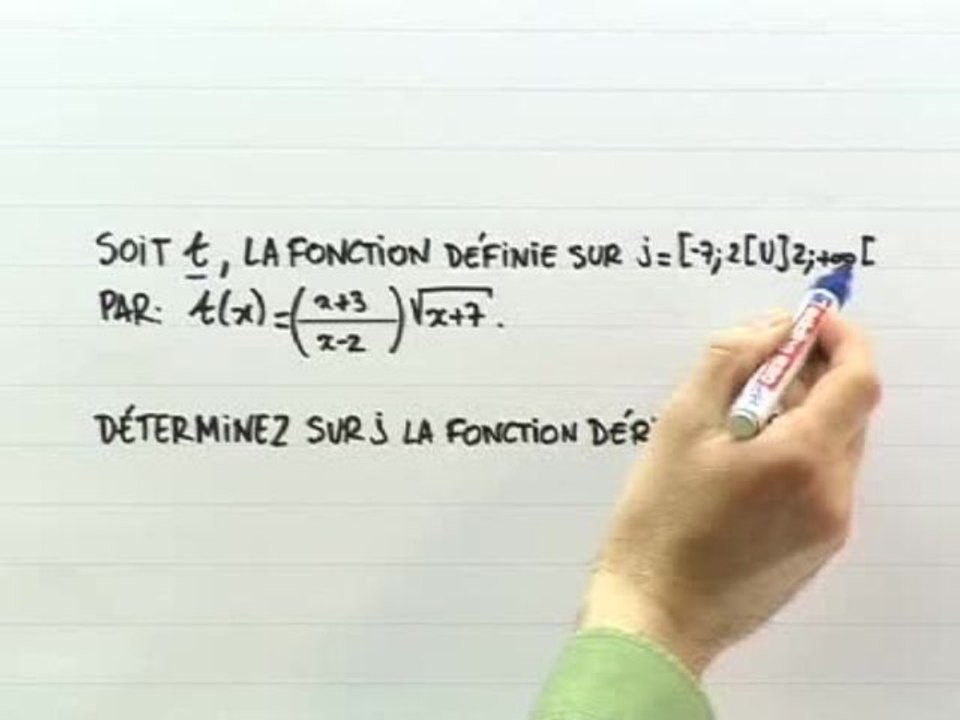 SOIT t, LA FONCTION DÉFINIE SUR j = [-7; 2[U]2; +∞[
PAR: t(x) = (x+3 / x-2) √x+7.
DÉTERMINEZ SUR j LA FONCTION